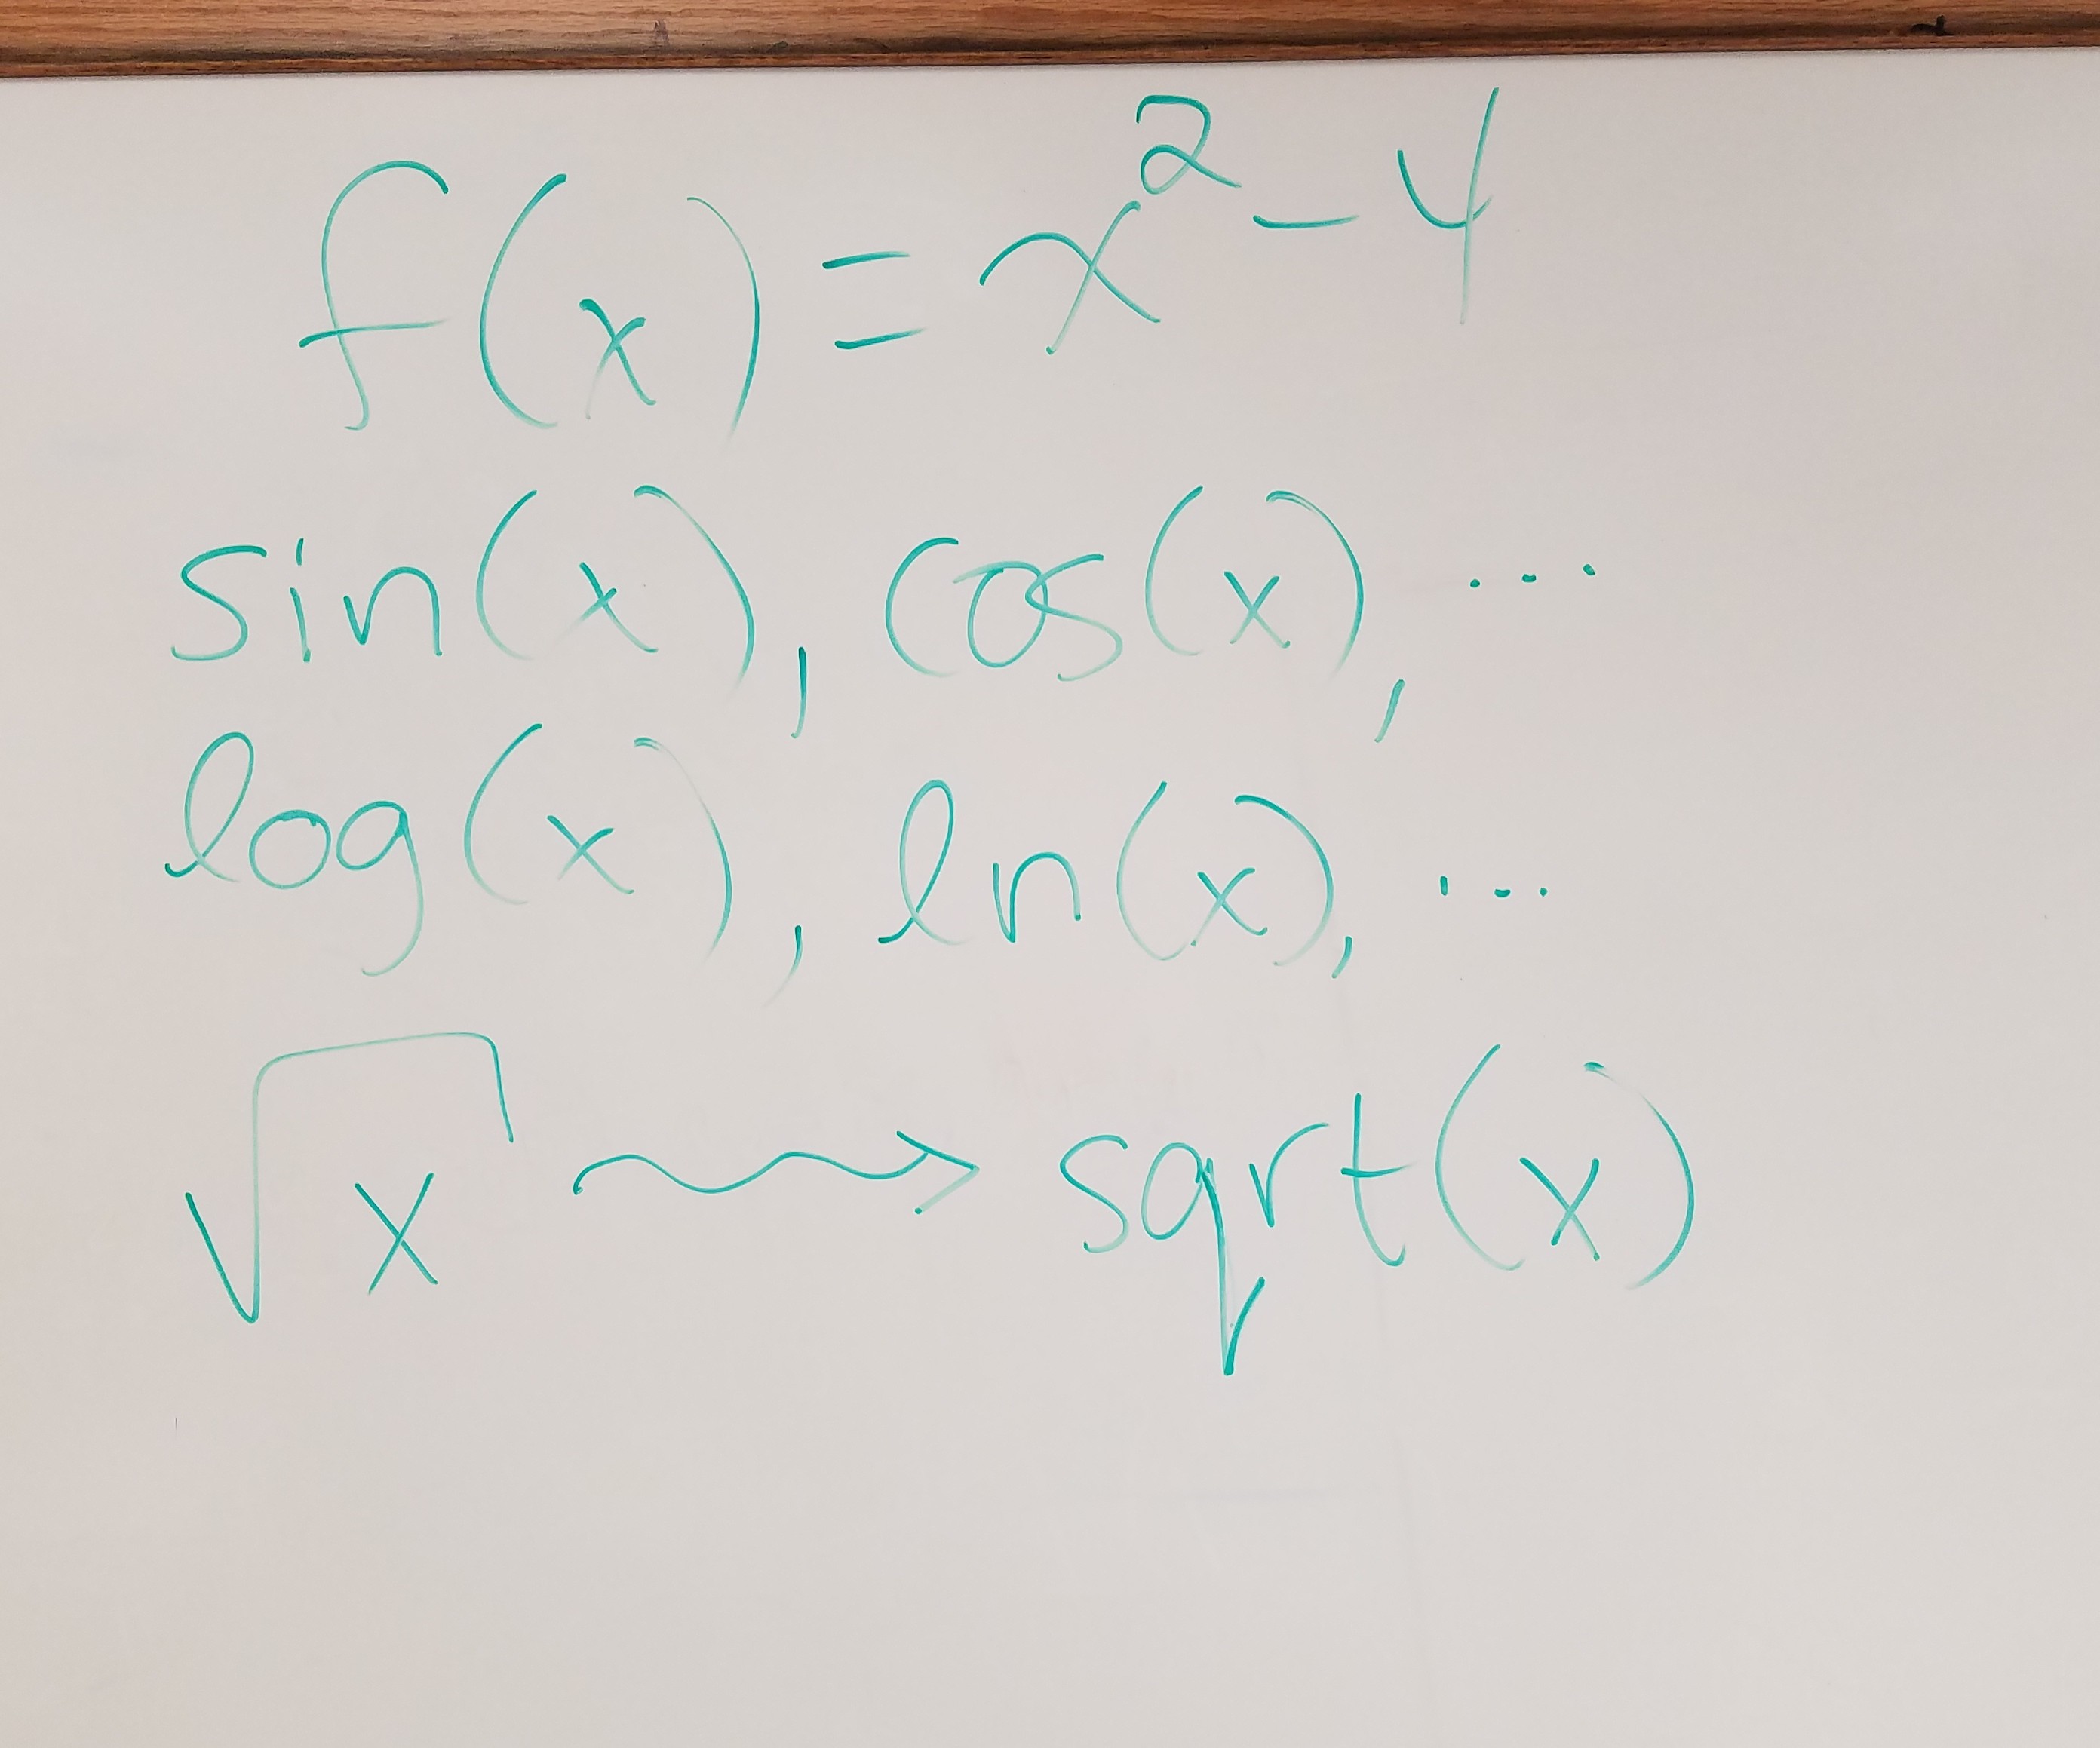 f(x) = x² - 4
sin(x), cos(x), ...
log(x), ln(x), ...
√x ⇝ sqrt(x)